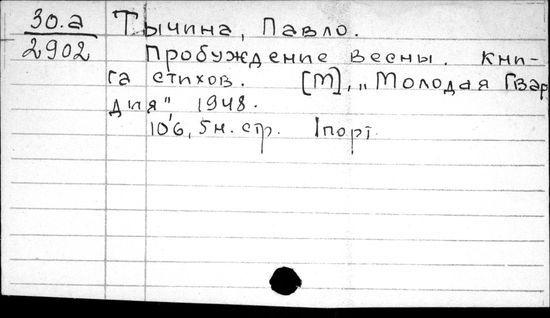 30.а
2902
Тычина, Павло.
Пробуждение весны. Кни-
га стихов. [М], „Молодая Гвар
дия", 1948.
106, 5н. стр. 1порт.